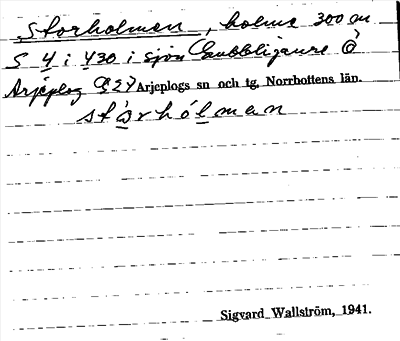 Storholmen, holme 300 m
S 4 i 430 i sjön Gubblijaure å
Arjeplog Arjeplogs sn och tg, Norrbottens län.
stårhólman
Sigvard Wallström, 1941.